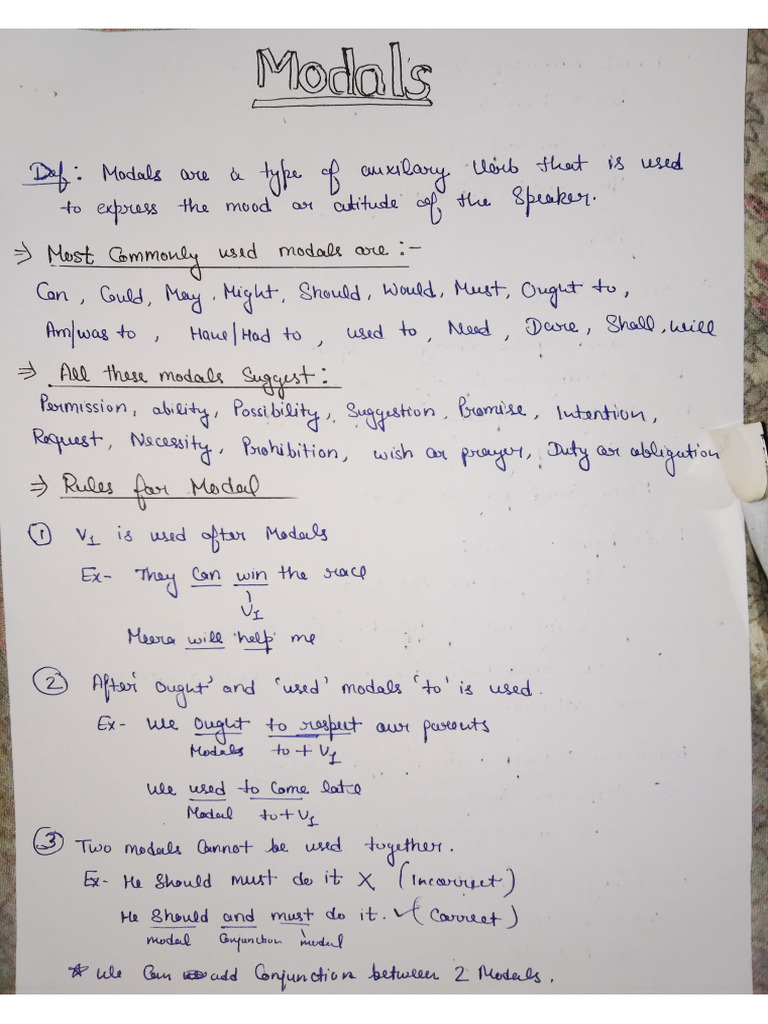 Modals
Def: Modals are a type of auxilary Verb that is used
to express the mood or atitude of the Speaker.
⇒ Most Commonly used modals are :-
Can, Could, May, Might, Should, Would, Must, Ought to,
Am/was to, Have/Had to, used to, Need, Dare, Shall, will
⇒ All these modals Suggest:
Permission, ability, Possibility, Suggestion, Promise, Intention,
Request, Necessity, Prohibition, wish or prayer, Duty or obligation
⇒ Rules for Modal
① V1 is used after Modals
Ex- They Can win the race
V1
Meera will help me
② After 'Ought' and 'used' modals 'to' is used.
Ex- We ought to respect our parents
Modals to + V1
We used to Come late
Modal to + V1
③ Two modals Cannot be used together.
Ex- He Should must do it X (Incorrect)
He Should and must do it. ✓ (Correct)
modal Conjunction modal
* We Can add Conjunction between 2 Modals.